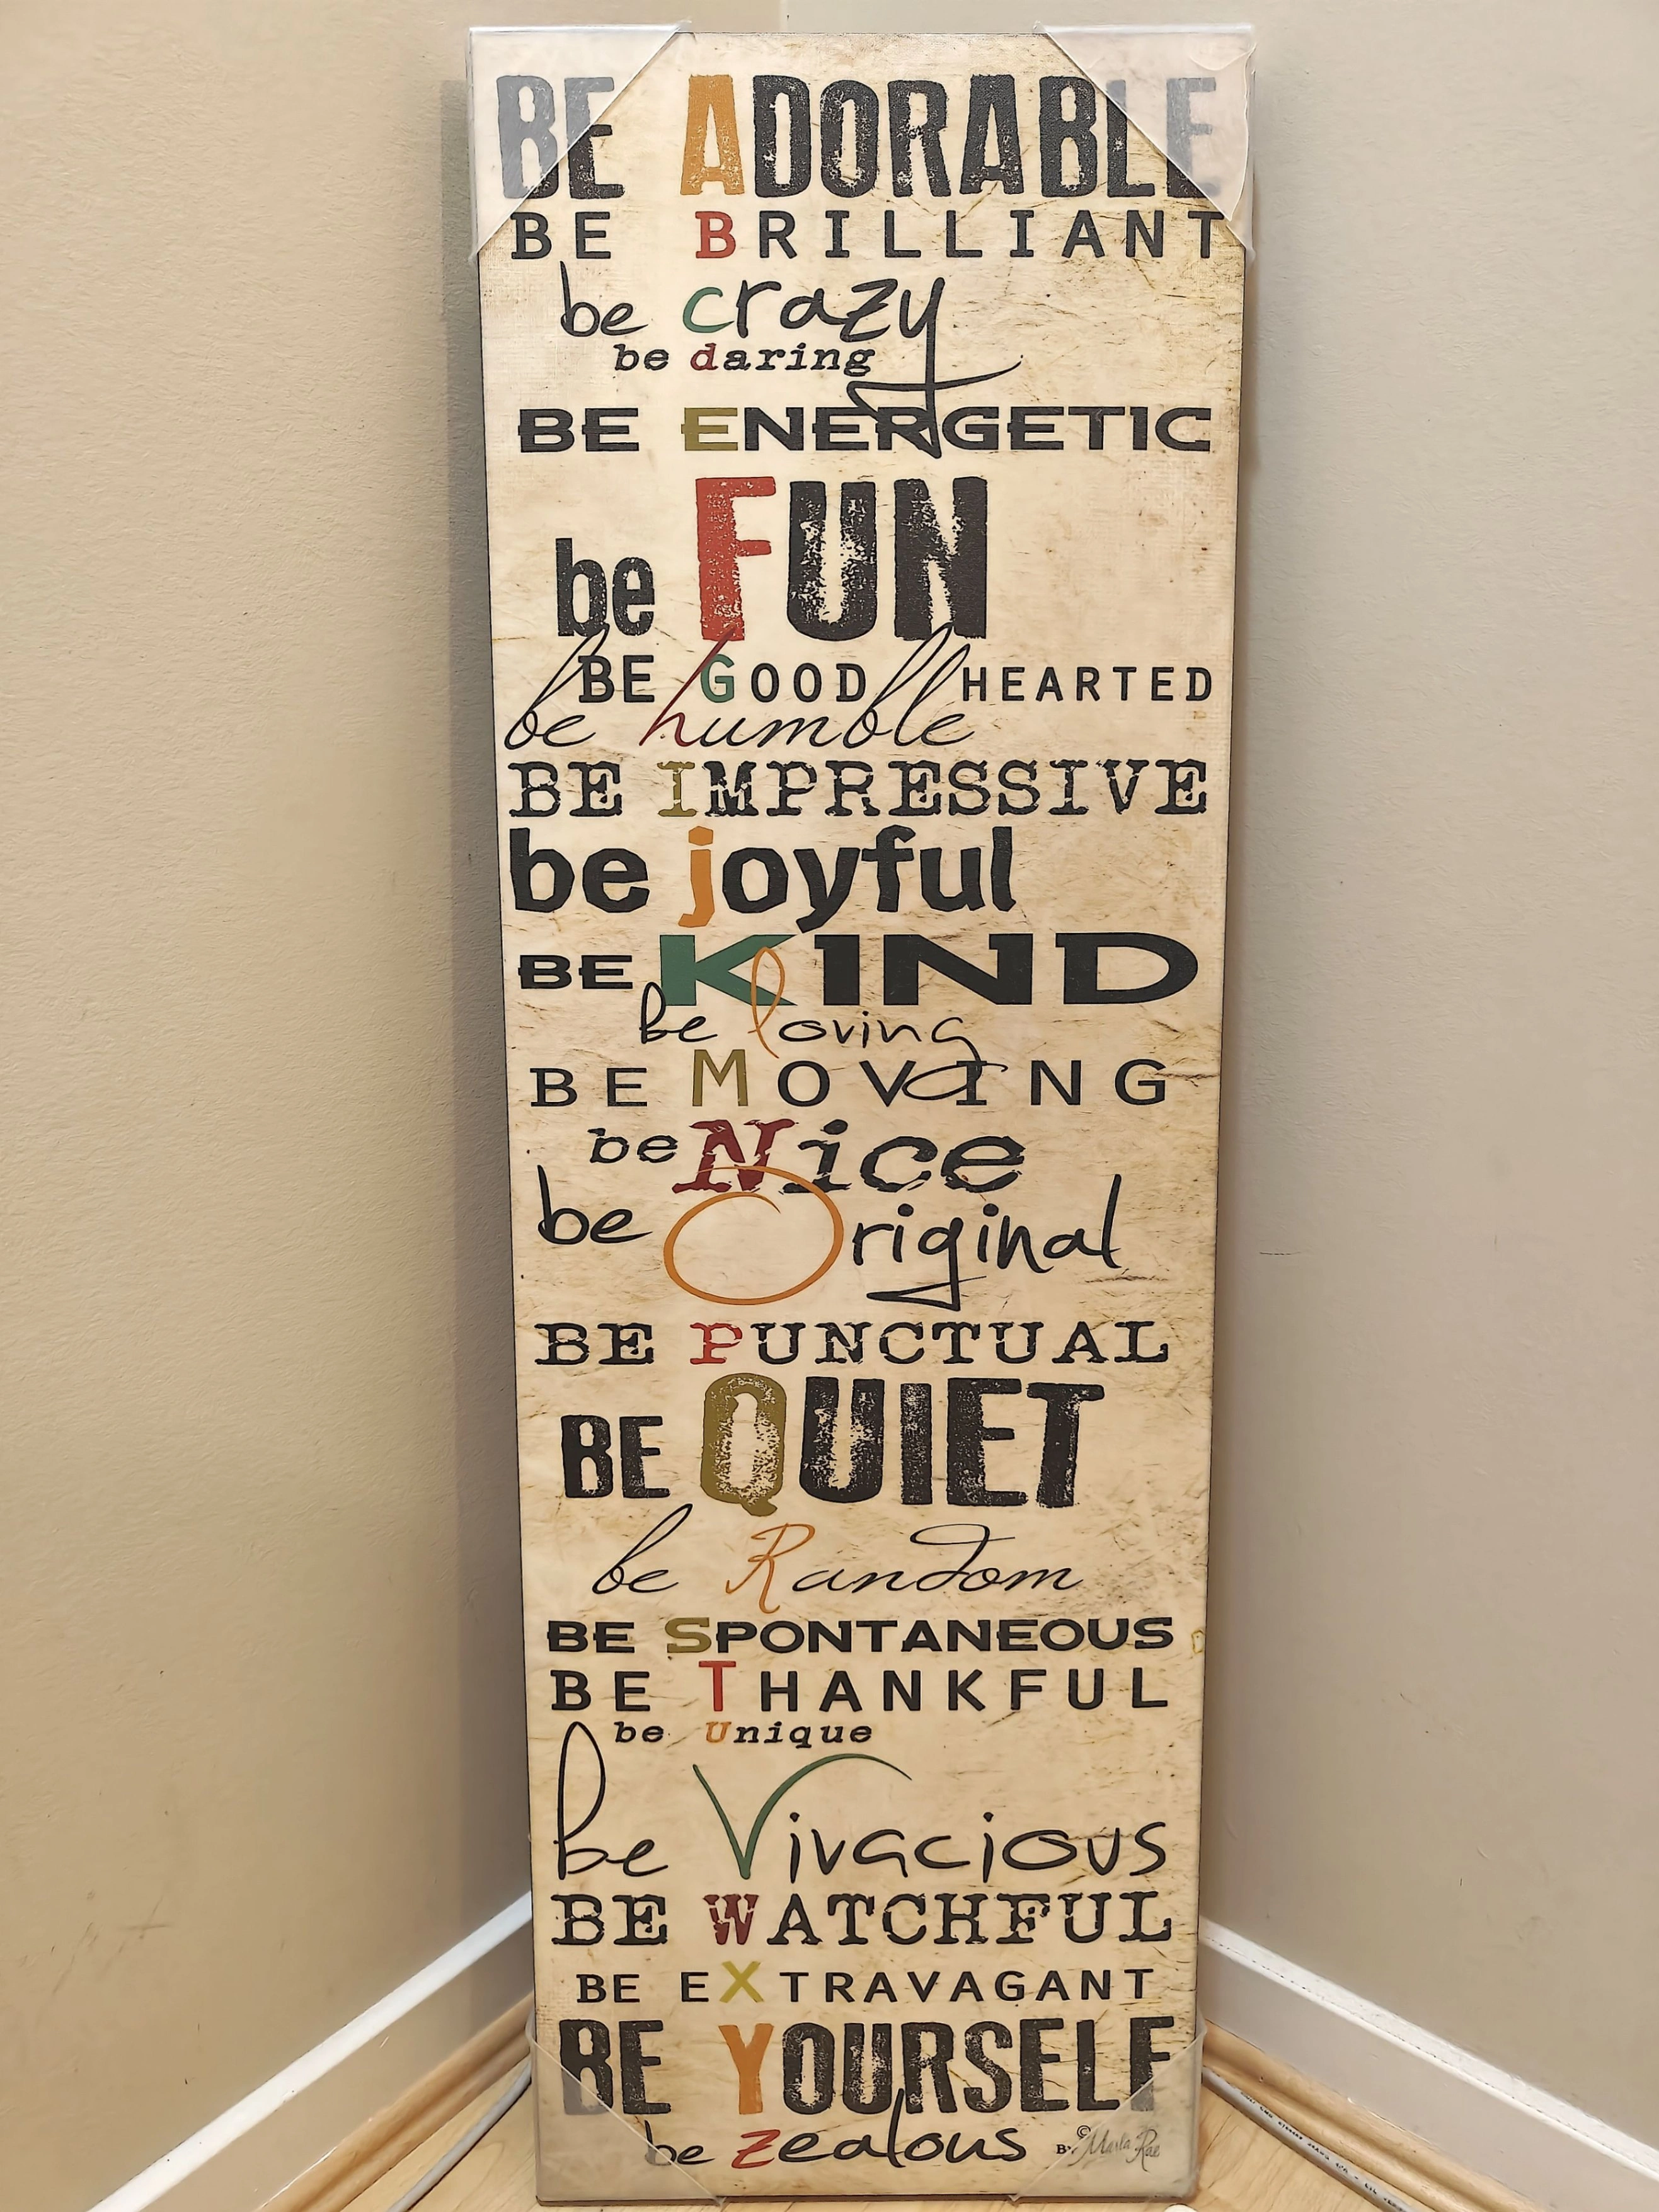 BE ADORABLE
BE BRILLIANT
be crazy
be daring
BE ENERGETIC
be FUN
BE GOOD HEARTED
be humble
BE IMPRESSIVE
be joyful
BE KIND
be loving
BE MOVING
be Nice
be Original
BE PUNCTUAL
BE QUIET
be Random
BE SPONTANEOUS
BE THANKFUL
be Unique
be Vivacious
BE WATCHFUL
BE EXTRAVAGANT
BE YOURSELF
be zealous
BY ©Marla Rae